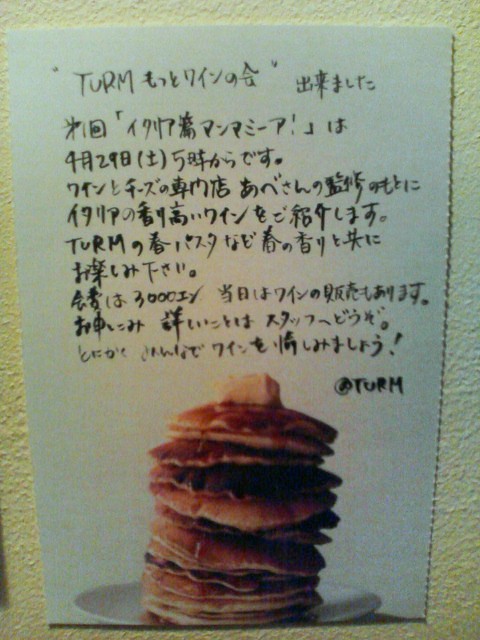 "TURM もっとワインの会" 出来ました
第1回「イタリア篇マンマミーア!」は
4月29日(土)5時からです。
ワインとチーズの専門店 あべさんの監修のもとに
イタリアの香り高いワインをご紹介します。
TURMの春パスタなど春の香りと共に
お楽しみ下さい。
会費は3000エン 当日はワインの販売もあります。
お申しこみ 詳しいことは スタッフへどうぞ。
とにかく みんなで ワインを愉しみましょう!
@TURM